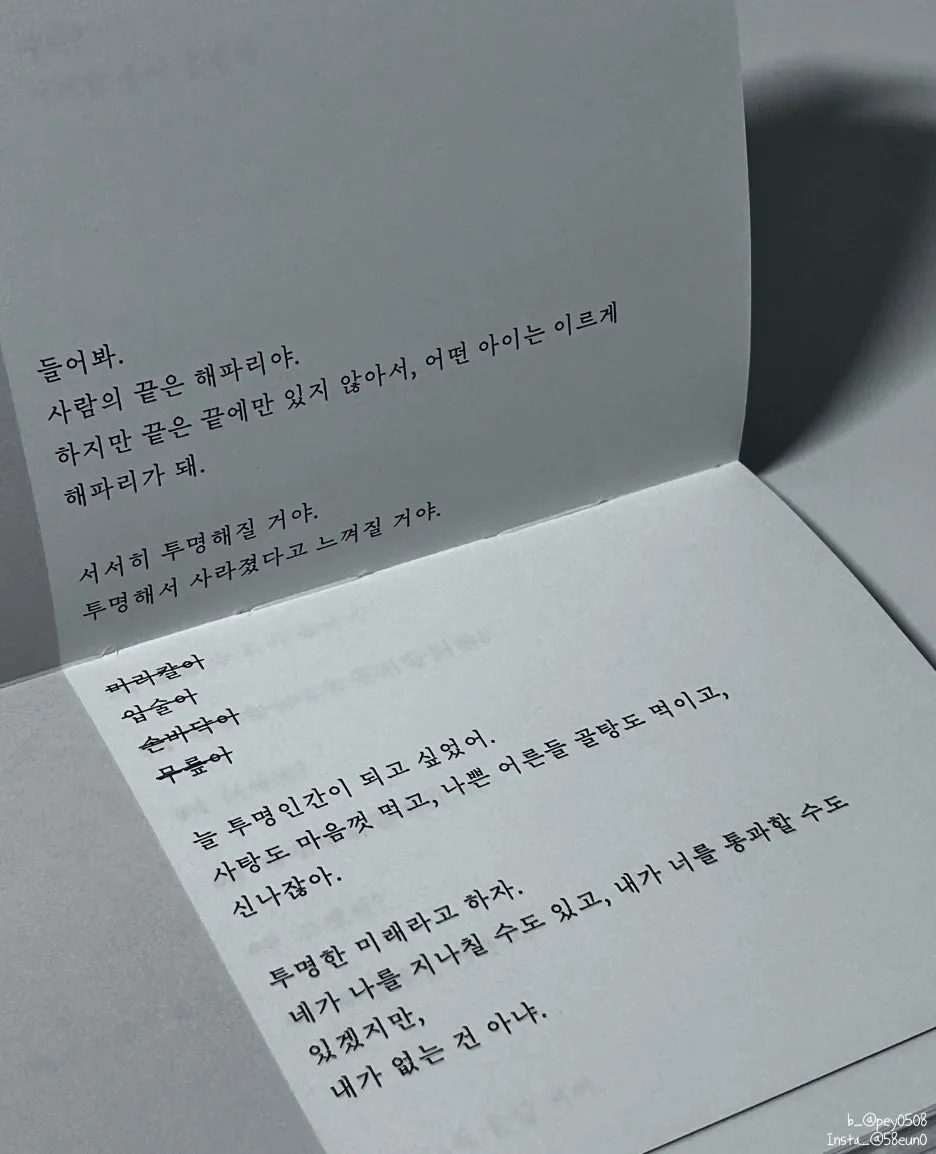 들어봐.
사람의 끝은 해파리야.
하지만 끝은 끝에만 있지 않아서, 어떤 아이는 이르게
해파리가 돼.
서서히 투명해질 거야.
투명해서 사라졌다고 느껴질 거야.
머리칼아
입술아
손바닥아
무릎아
늘 투명인간이 되고 싶었어.
사탕도 마음껏 먹고, 나쁜 어른들 골탕도 먹이고,
신나잖아.
투명한 미래라고 하자.
네가 나를 지나칠 수도 있고, 내가 너를 통과할 수도
있겠지만,
내가 없는 건 아냐.
b_@pey0508
Insta_@58eun0